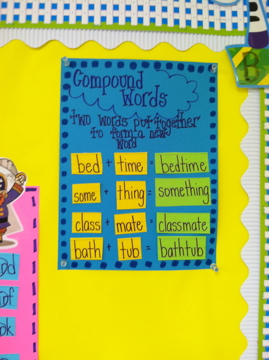 Compound
Words
Two words put together
to form a new
word
bed + time = bedtime
some + thing = something
class + mate = classmate
bath + tub = bathtub
B
Dd